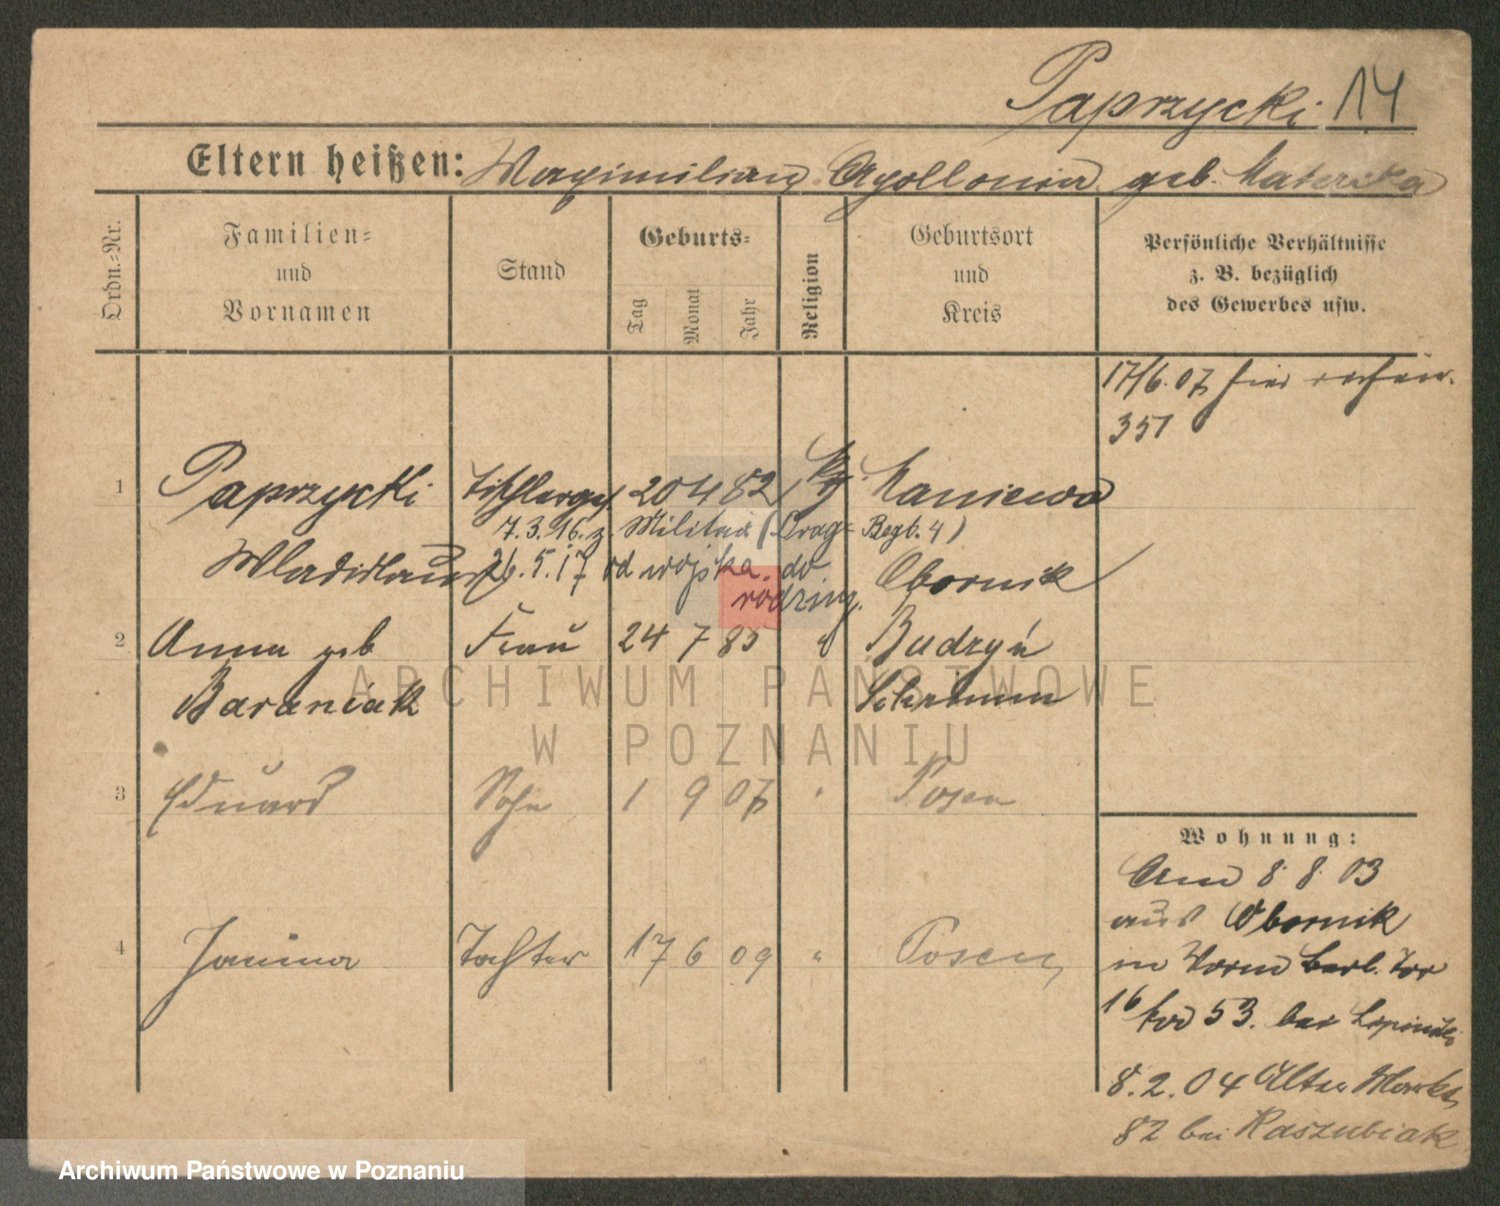 Paprzycki 14
Eltern heißen: Maximilian Apollonia geb. Materska
Ordn.-Nr.
Familien- und Vornamen
Stand
Geburts-
Tag
Monat
Jahr
Religion
Geburtsort und Kreis
Persönliche Verhältnisse
z. B. bezüglich
des Gewerbes usw.
17/6. 07 hier
351
1 Paprzycki Tischlerges. 20 4 82 Kaniewo
7.3.16. z. Militär (Drag- Regt. 4)
Wladislaus 26.5.17 od wojska do Obornik
rodziny.
2 Anna geb Frau 24 7 85 " Budzyń
Baraniak Schrimm
3 Eduard Sohn 1 9 07 " Posen
4 Janina Tochter 17 6 09 " Posen
Wohnung:
Am 8 8 03
aus Obornik
in Vorm berl. Tor
16 53. bei Lipinski
8.2.04 Alter Markt
82 bei Kaszubiak
ARCHIWUM PAŃSTWOWE
W POZNANIU
Archiwum Państwowe w Poznaniu